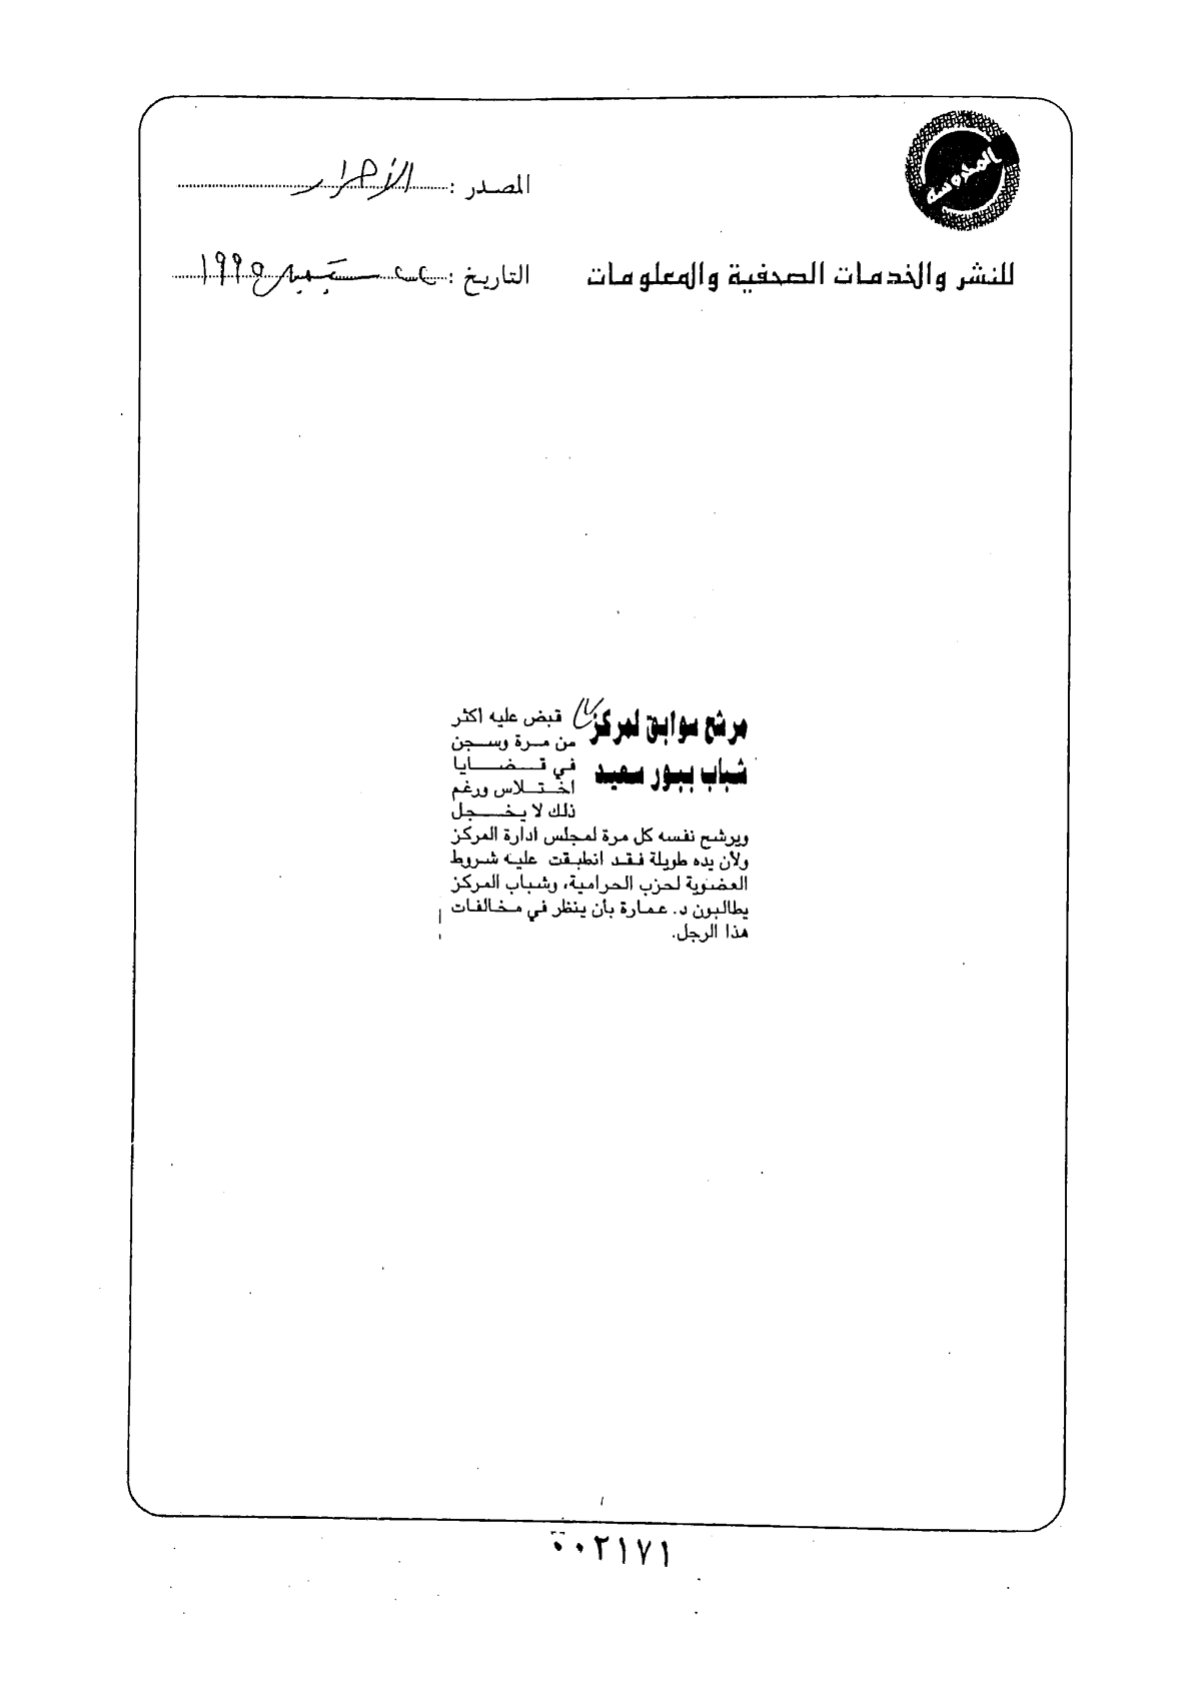 المحروسة
المصدر : الأحرار
للنشر والخدمات الصحفية والمعلومات
التاريخ : ٢٢ سبتمبر ١٩٩٥
مرشح سوابق لمركز
شباب ببور سعيد
قبض عليه اكثر
من مرة وسجن
في قضايا
اختلاس ورغم
ذلك لا يخجل
ويرشح نفسه كل مرة لمجلس ادارة المركز
ولأن يده طويلة فقد انطبقت عليه شروط
العضوية لحزب الحرامية، وشباب المركز
يطالبون د. عمارة بأن ينظر في مخالفات
هذا الرجل.
٠٠٢١٧١